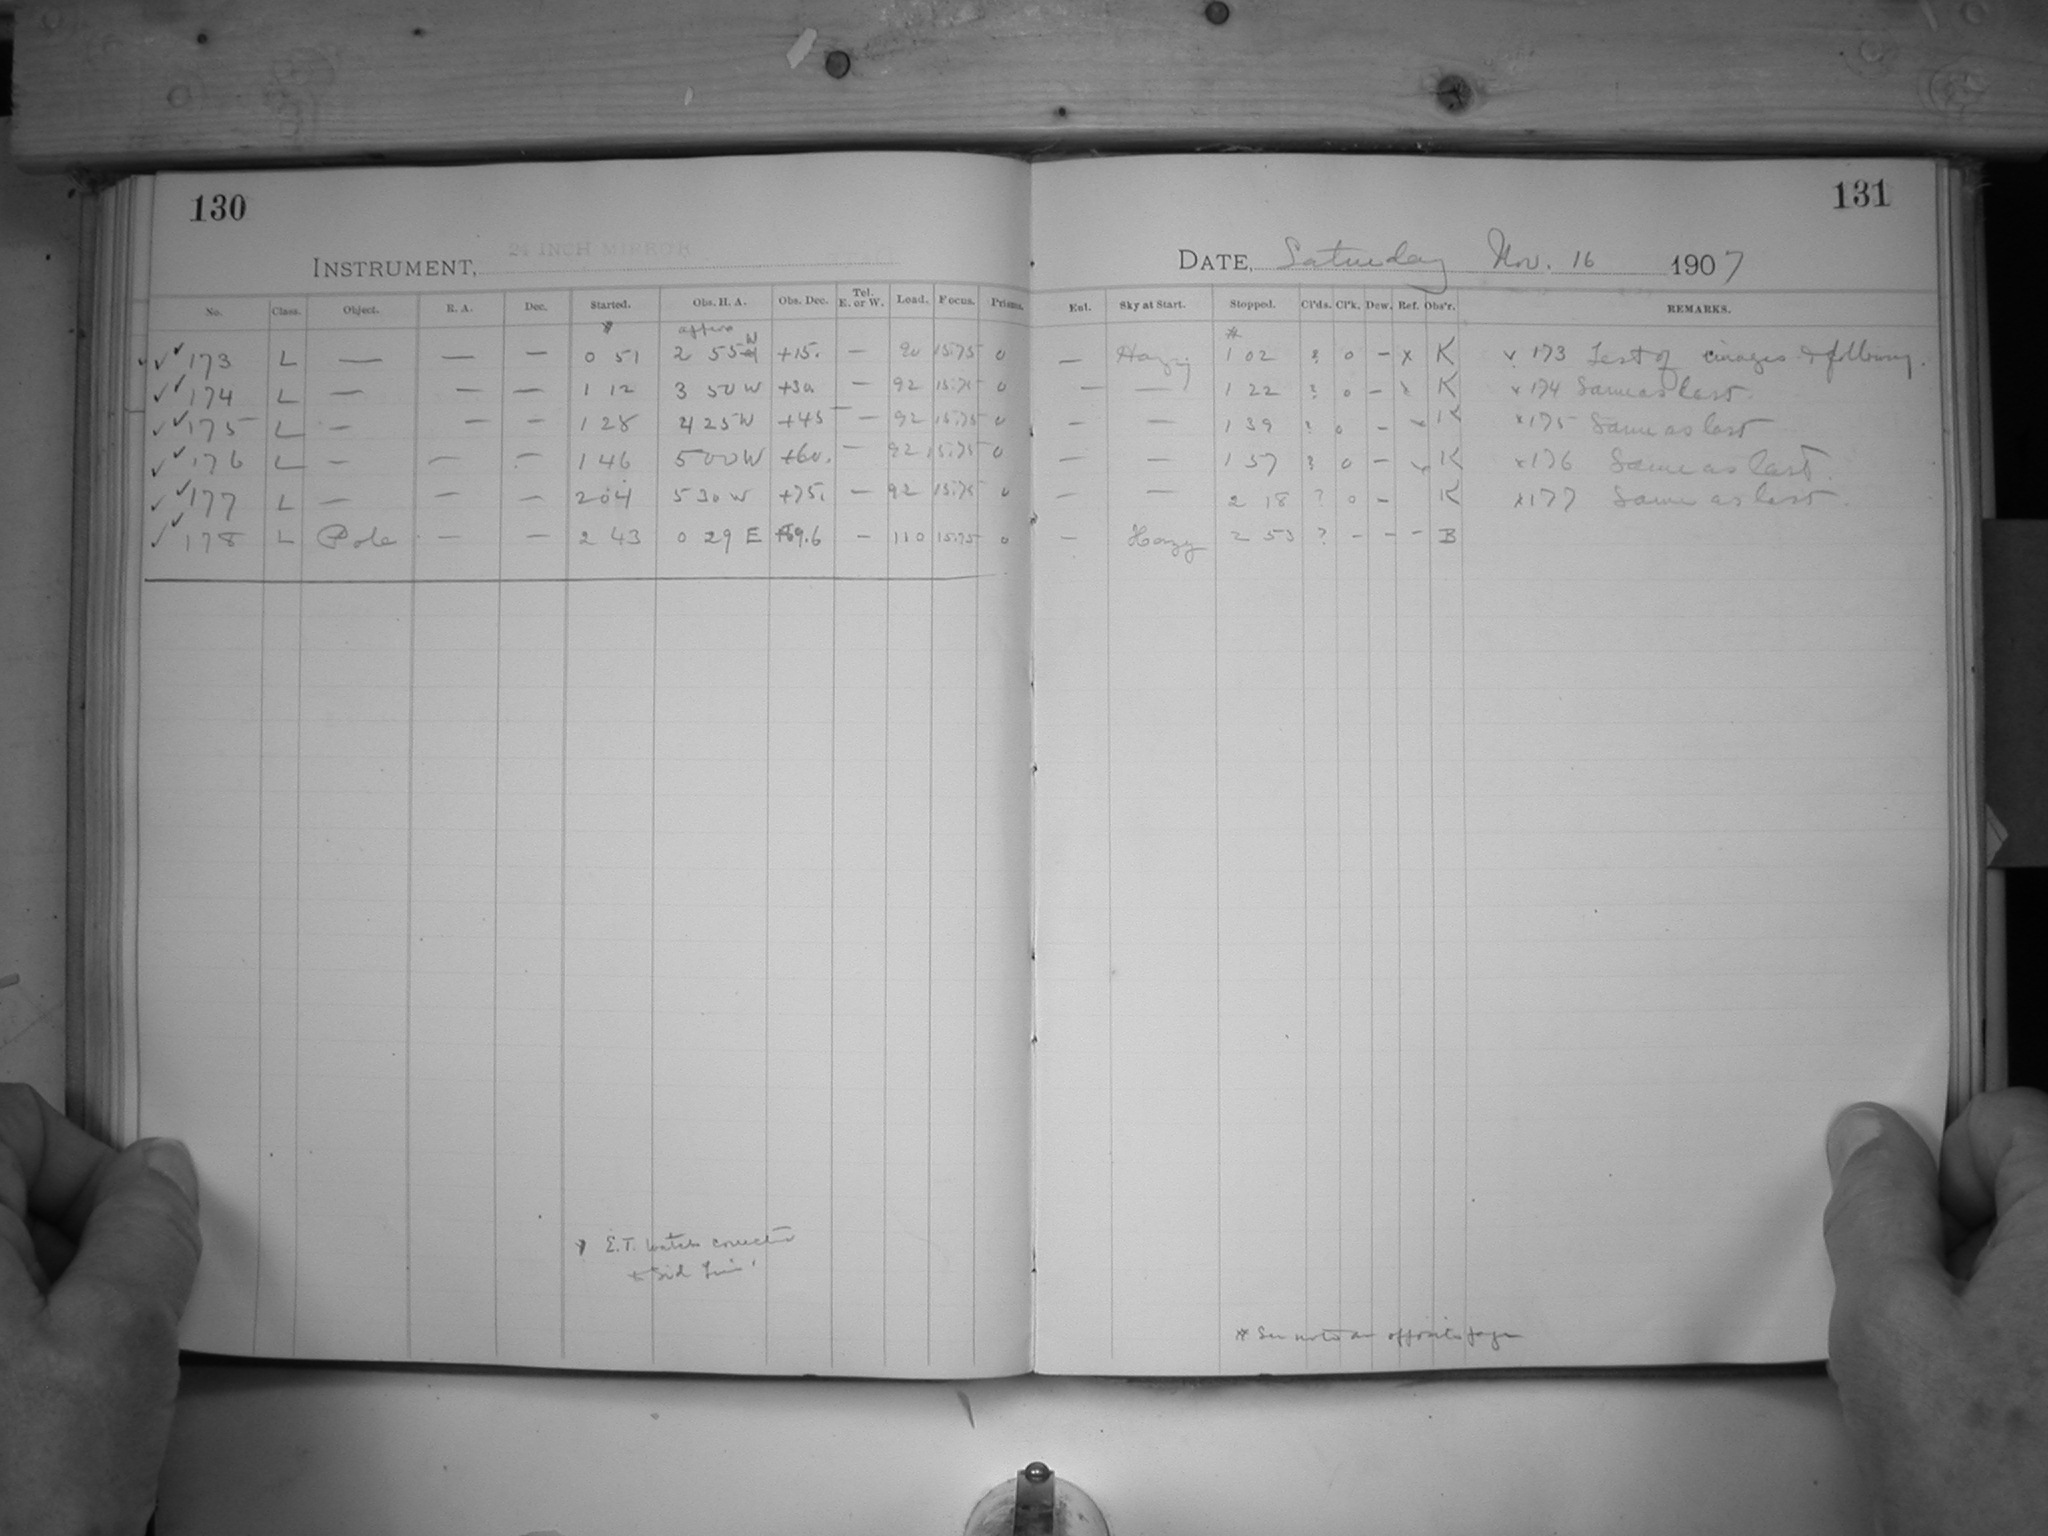 130
24 INCH MIRROR
INSTRUMENT,
No. Class. Object. R. A. Dec. Started. Obs. H. A. Obs. Dec. Tel. E. or W. Load. Focus. Prisms.
* approx
✓✓173 L — — — 0 51 2 55 W +15. — 90 15.75 0
✓✓174 L — — — 1 12 3 50 W +30 — 92 15.75 0
✓✓175 L — — — 1 28 4 25 W +45 — 92 15.75 0
✓✓176 L — — — 1 46 5 00 W +60. — 92 15.75 0
✓✓177 L — — — 2 04 5 30 W +75. — 92 15.75 0
✓✓178 L Pole — — 2 43 0 29 E +89.6 — 110 15.75 0
* E.T. watch corrected
to Sid Time.
131
DATE, Saturday Nov. 16 1907
Enl. Sky at Start. Stopped. Cl'ds. Cl'k. Dew. Ref. Obs'r. REMARKS.
*
— Hazy 1 02 ? 0 — x K x 173 Test of images & following.
— — 1 22 ? 0 — x K x 174 Same as last.
— — 1 39 ? 0 — x K x 175 Same as last
— — 1 57 ? 0 — x K x 176 Same as last.
— — 2 18 ? 0 — K x 177 Same as last.
— Hazy 2 53 ? — — — B
* See note on opposite page